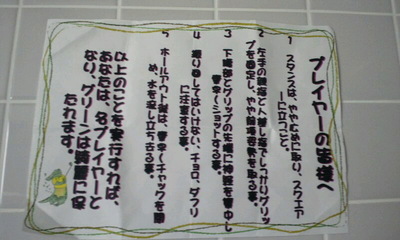 プレイヤーの皆様へ
1 スタンスは、やや広めに取り、スクエア
ーに立つこと。
2 左手の親指と人差し指でしっかりグリッ
プを固定し、やや前傾姿勢を取る事。
3 下腹部とグリップの先端に神経を集中し
背筆(ショットする事。
4 振り回してはいけない、チョロ、ダフリ
に注意する事。
5 ホールアウト後は、背筆(チャックを閉
め、水を流し立ち去る事。
以上のことを実行すれば、
あなたは、名プレイヤーと
なり、グリーンは綺麗に保
たれます。